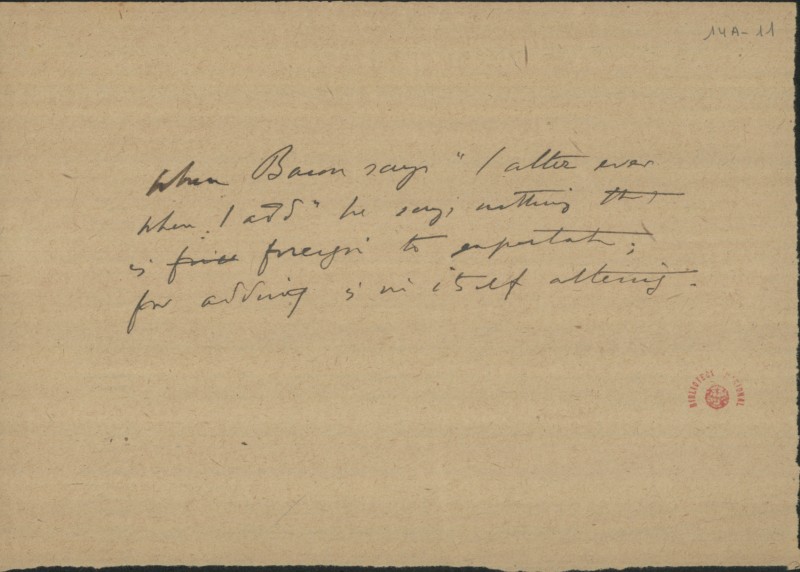 14A-11
When Bacon says "I alter ever
when I add" he says nothing that
is foreign to expectation;
for adding is in itself altering.
BIBLIOTECA NACIONAL